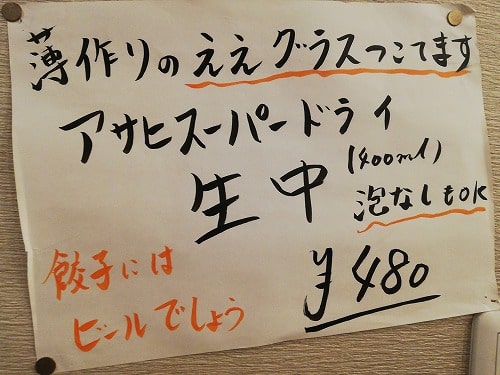 薄作りのええグラスつこてます
アサヒスーパードライ
生中 (400ml)
泡なしもOK
餃子には
ビールでしょう
¥480